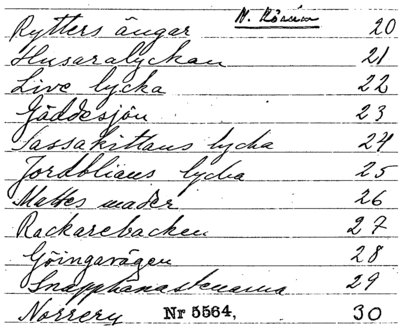 N. Rörum
Rytters ängar 20
Husaralyckan 21
Live lycka 22
Gäddesjön 23
Sassakittans lycka 24
Jordblians lycka 25
Mattes mader 26
Rackarebacken 27
Göingavägen 28
Snapphanastenarna 29
Norreru Nr 5564, 30